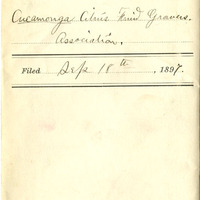 Cucamonga Citrus Fruit Growers.
Association.
Filed Sep 18th, 1897.